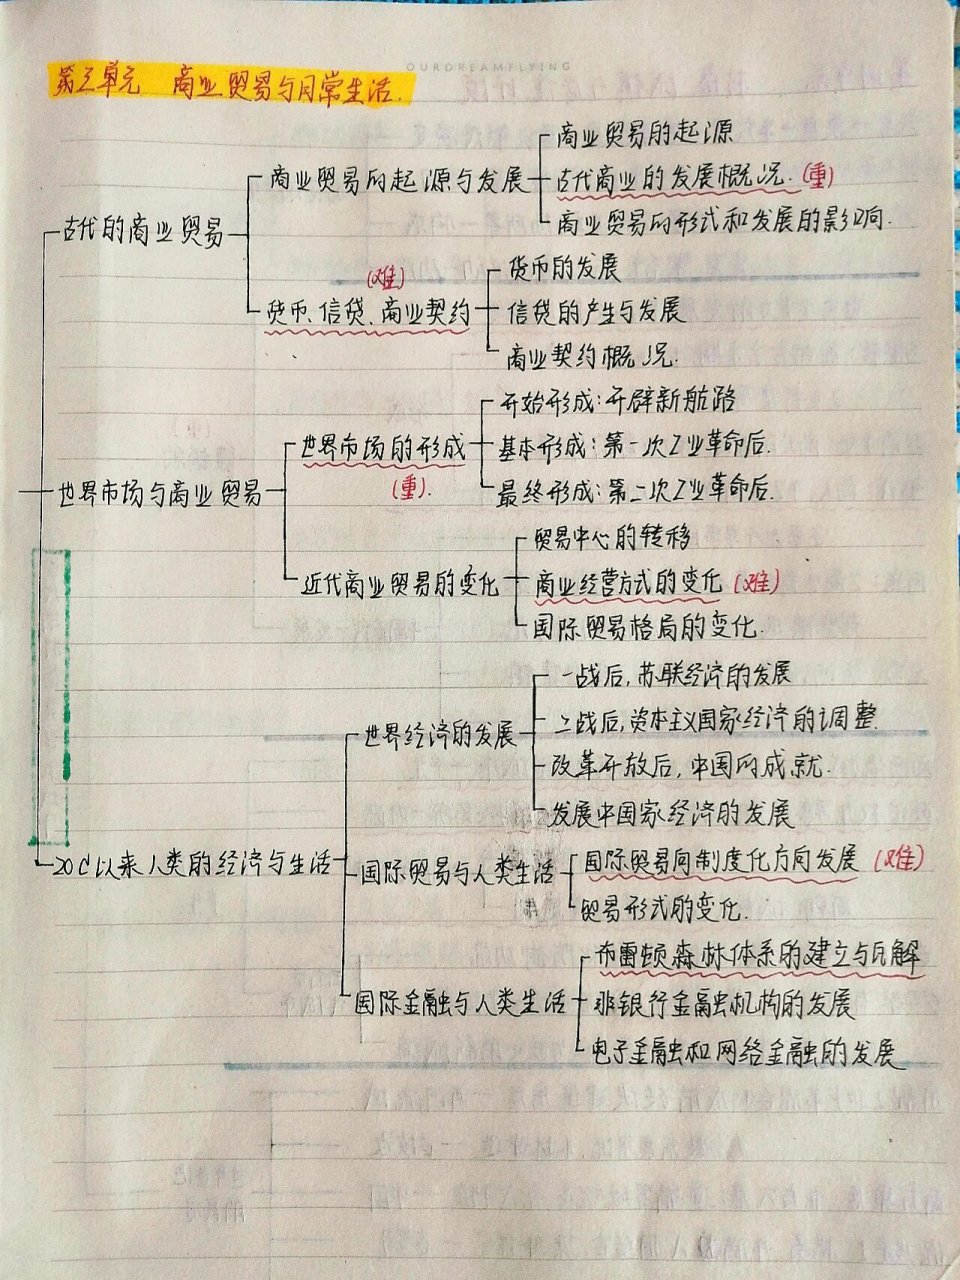 OURDREAMFLYING
第三单元 商业贸易与日常生活.
商业贸易的起源
商业贸易的起源与发展
古代商业的发展概况.(重)
商业贸易的形式和发展的影响.
古代的商业贸易
货币的发展
(难)
货币、信贷、商业契约
信贷的产生与发展
商业契约概况.
开始形成:开辟新航路
世界市场的形成
基本形成:第一次工业革命后.
(重).
最终形成:第二次工业革命后.
世界市场与商业贸易
贸易中心的转移
近代商业贸易的变化
商业经营方式的变化(难)
国际贸易格局的变化.
一战后,苏联经济的发展
世界经济的发展
二战后,资本主义国家经济的调整.
改革开放后,中国的成就.
发展中国家经济的发展
20C以来人类的经济与生活
国际贸易与人类生活
国际贸易向制度化方向发展(难)
贸易形式的变化.
布雷顿森林体系的建立与瓦解
国际金融与人类生活
非银行金融机构的发展
电子金融和网络金融的发展